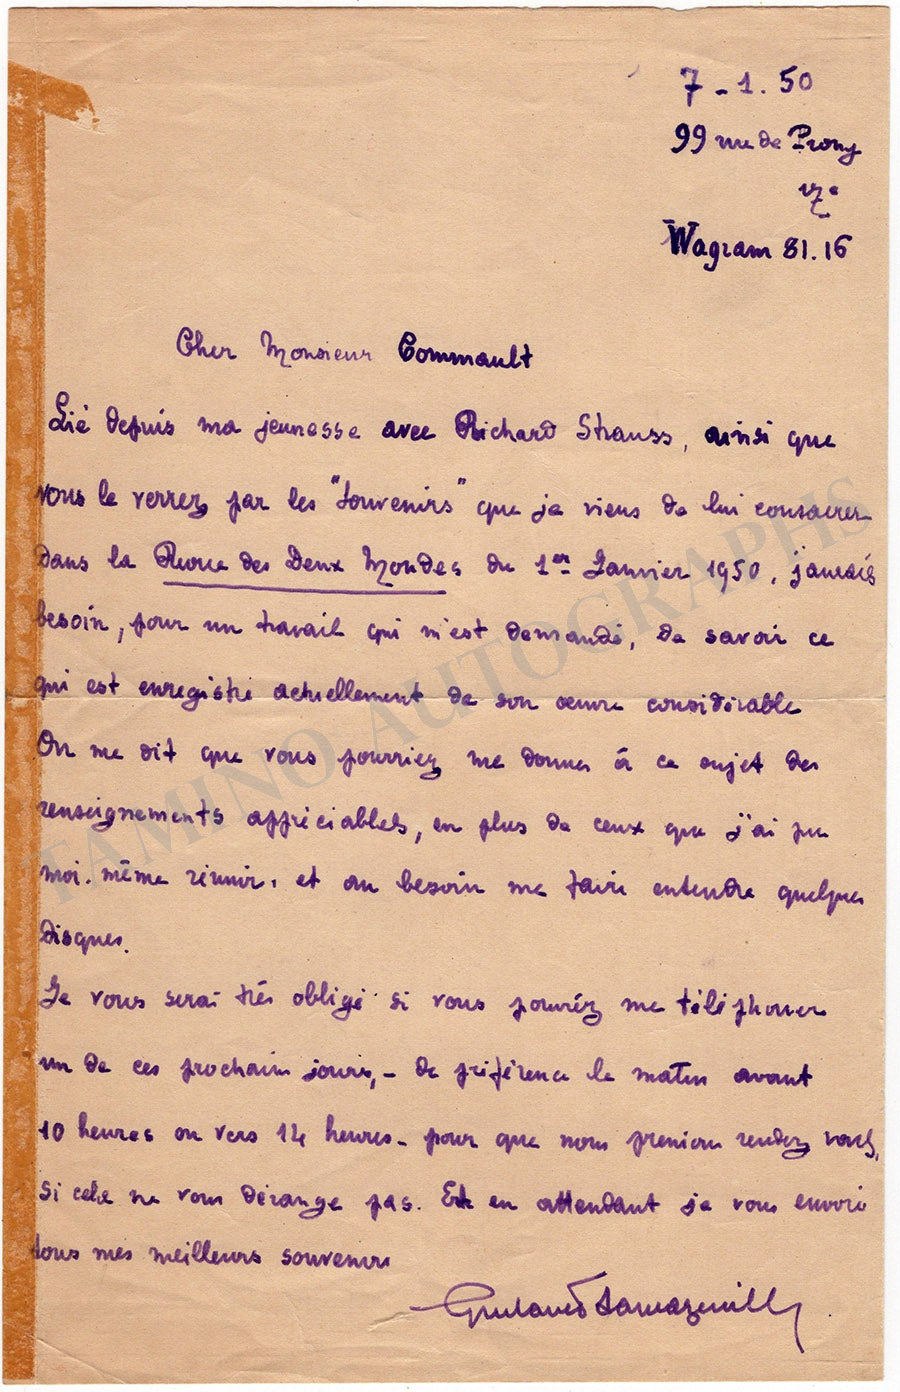 7 - 1. 50
99 rue de Prony
17e
Wagram 81.16
Cher Monsieur Commault
Lié depuis ma jeunesse avec Richard Strauss, ainsi que
vous le verrez par les "souvenirs" que je viens de lui consacrer
dans la Revue des Deux Mondes du 1er Janvier 1950, j'aurais
besoin, pour un travail qui m'est demandé, de savoir ce
qui est enregistré actuellement de son œuvre considérable
On me dit que vous pourriez me donner à ce sujet des
renseignements appréciables, en plus de ceux que j'ai pu
moi-même réunir, et au besoin me faire entendre quelques
disques.
Je vous serai très obligé si vous pouvez me téléphoner
un de ces prochain jours, - de préférence le matin avant
10 heures ou vers 14 heures - pour que nous prenions rendez vous,
si cela ne vous dérange pas. Et en attendant je vous envoie
tous mes meilleurs souvenirs
Gustave Samazeuilh
TAMINO AUTOGRAPHS